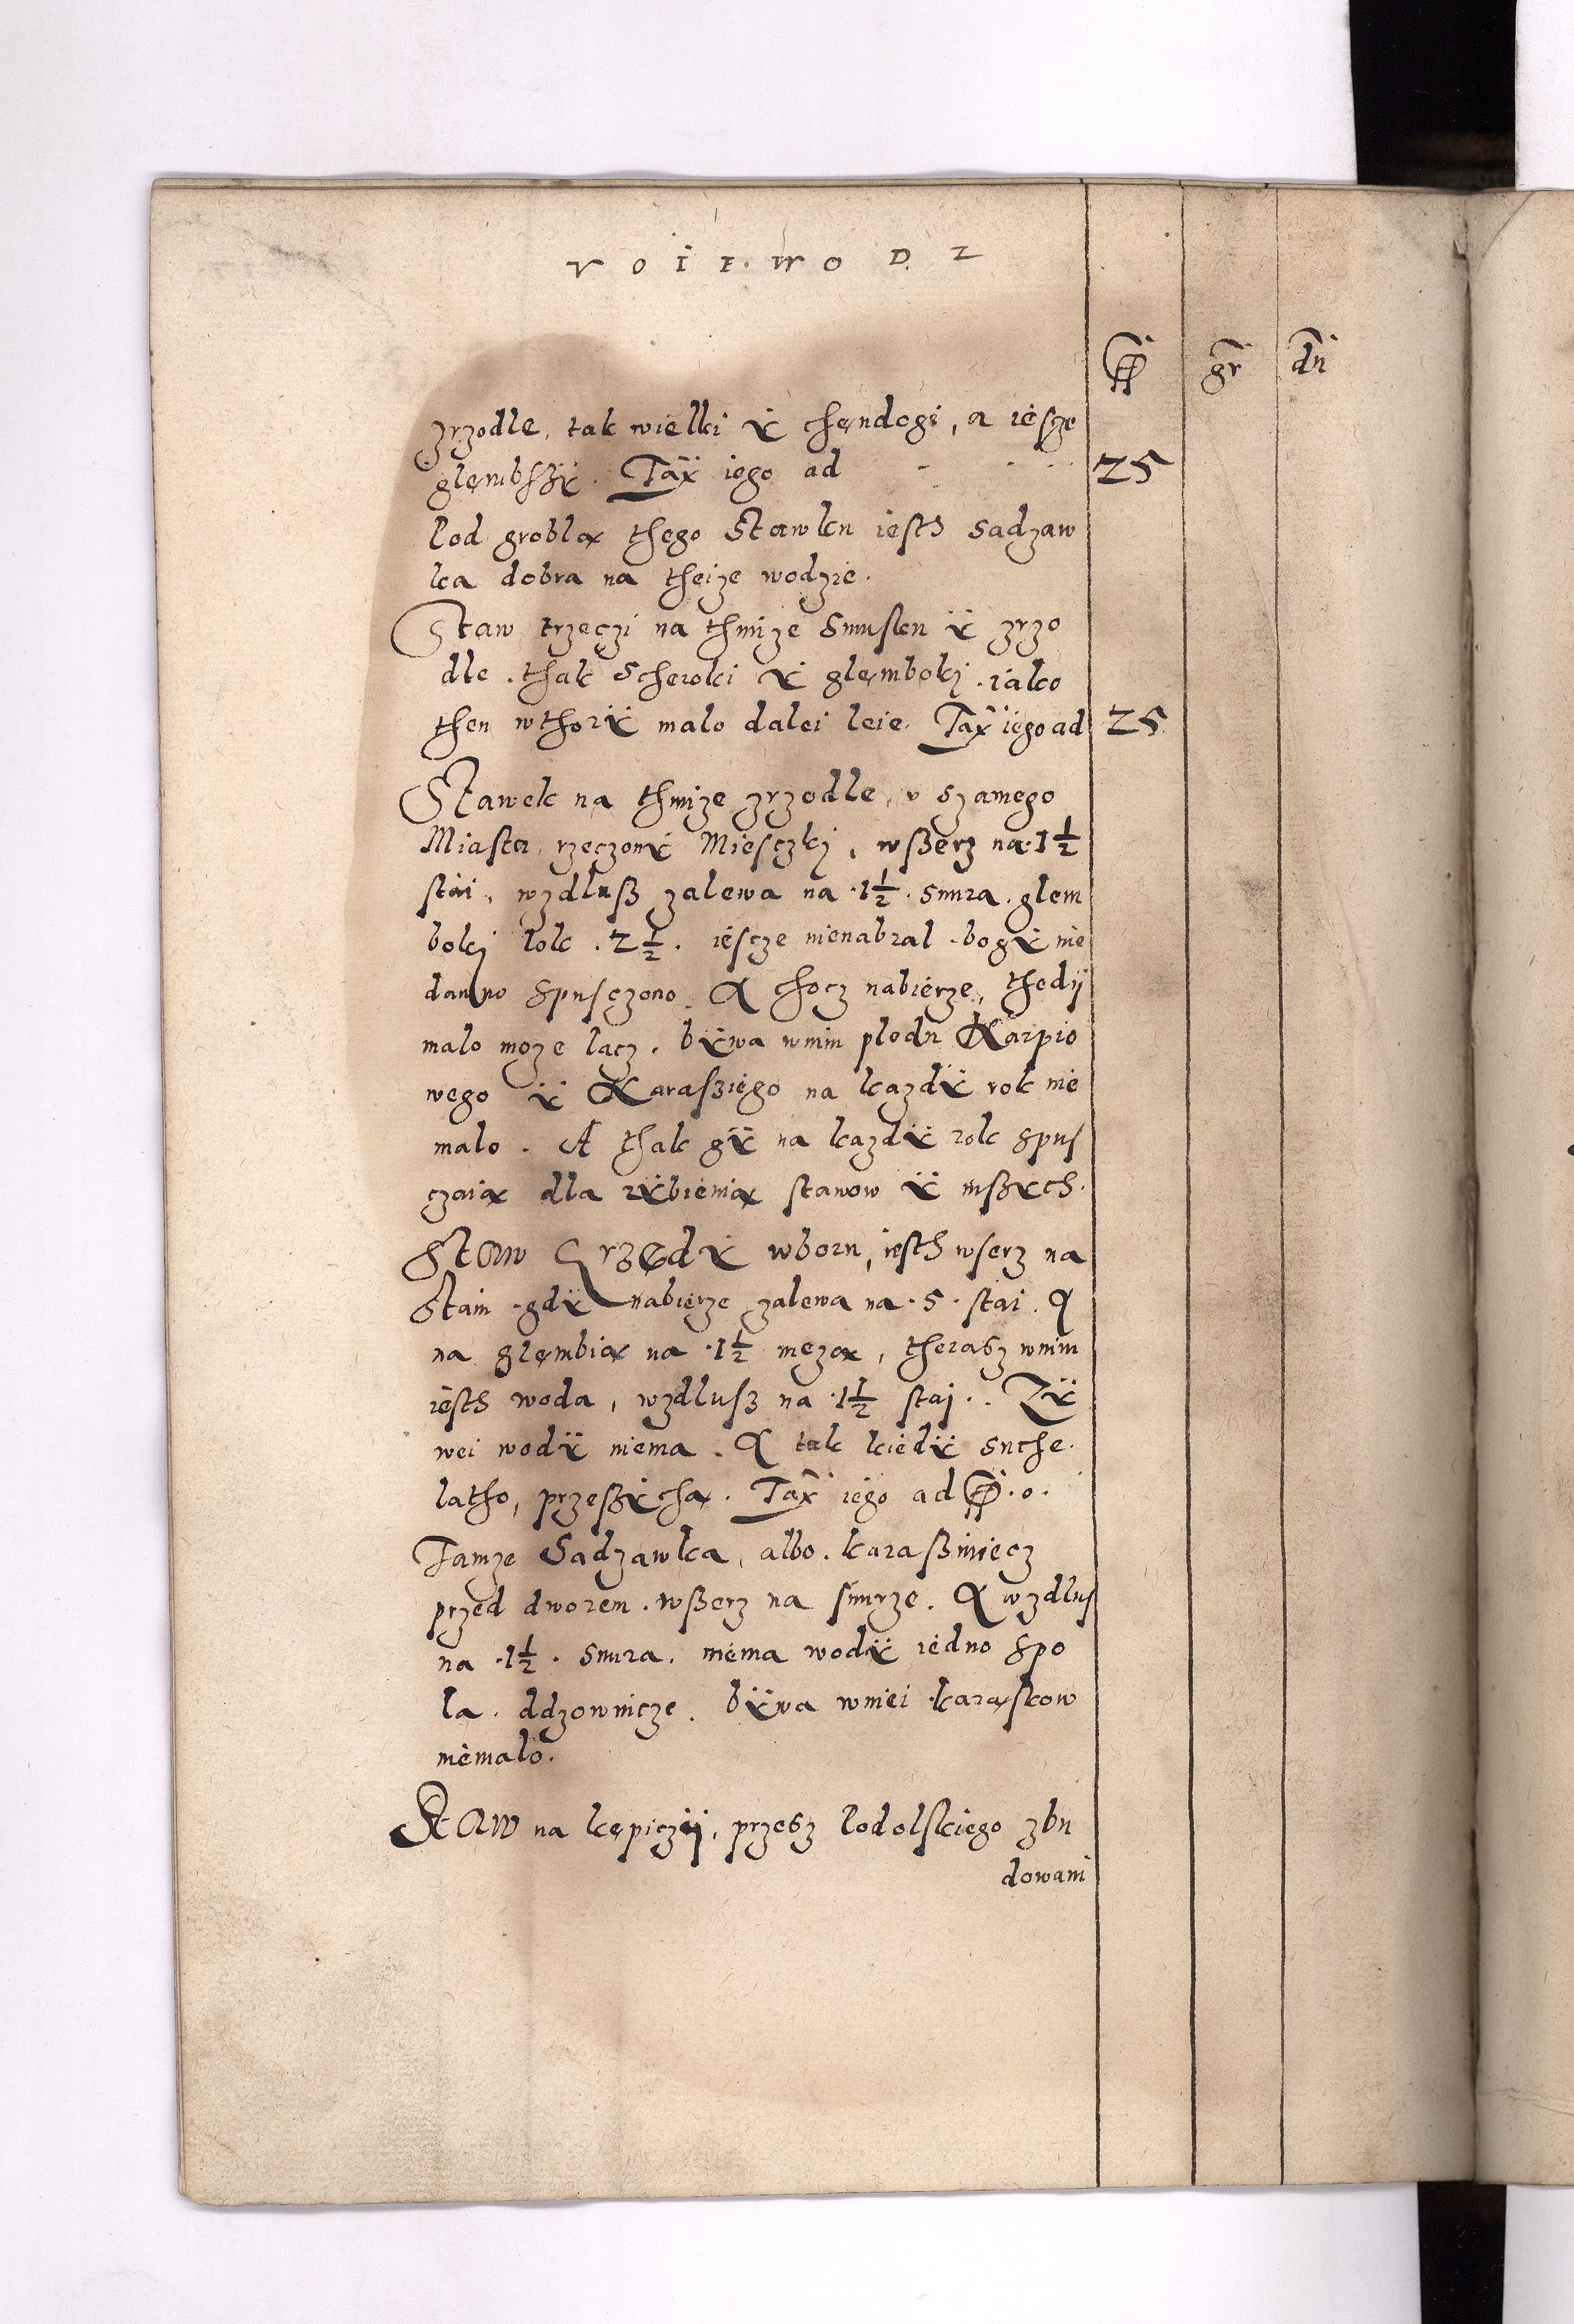 VOIEWODZ
fl gr dn
zrzodle, tak wielki ÿ chęndogi, a iescze
glęmbßÿ. Tax iego ad - - - 25
Pod groblą thego Stawku iesth Sadzaw
ka dobra na theize wodzie.
Staw trzeczi na thmize Smusku ÿ zrzo
dle. thak Scheroki ÿ glęmbokj. iako
then wthorÿ malo dalei leie. Tax iego ad 25
Stawek na thmize zrzodle, v szamego
Miasta, rzeczonÿ Miesczkj, wßerz na 1 1/2
stai, wzdluß zalewa na 1 1/2. snura. glem
bokj lok. 2 1/2. iescze nienabral. bo gÿ nie
dawno Spusczono. A chocz nabierze, thedij
malo moze lacz. bÿwa wnim plodu Karpio
wego ÿ Karaßiego na kazdÿ rok nie
malo. A thak gÿ na kazdÿ rok Spus
czaią dla rÿbienia stawow ÿ inßÿch.
Staw Grzędÿ wboru, iesth wserz na
Stain. gdÿ nabierze zalewa na. 5. stai. A
na glęmbią na. 1 1/2 męzą, therasz wnim
iesth woda, wzdlusz na. 1 1/2 stai. Zÿ
wei wodÿ niema. A tak kiedÿ suche
latho, przeßÿcha. Tax iego ad fl. o.
Tamze Sadzawka, albo. karaßiniecz
przed dworem. wßerz na snurze. A wzdlus
na. 1 1/2. snura. niema wodÿ iedno Spo
la. ddzownicze. bÿwa wniei karaskow
niemalo.
Staw na kępiczij, przesz Podolskiego zbu
dowani